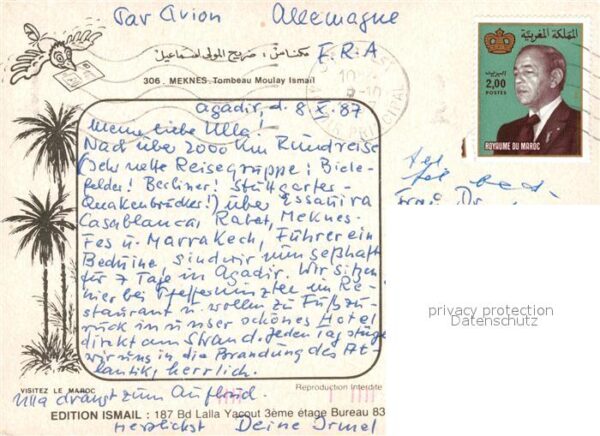 Par Avion Allemagne
F.R.A
مكناس: ضريح المولى إسماعيل
306. MEKNES. Tombeau Moulay Ismaïl
المملكة المغربية
البريد
2,00
POSTES
ROYAUME DU MAROC
PRINCIPAL
Agadir, d. 8.X.87
Meine liebe Ulla!
Nach über 2000 km Rundreise
(Sehr nette Reisegruppe: Biele-
felder! Berliner! Stuttgarter-
Quakenbrücker!) über Essauira
Casablanca, Rabat, Meknes-
Fes u. Marrakech, Führer ein
Beduine, sind wir nun seßhaft
für 7 Tage in Agadir. Wir sitzen
hier bei Pfefferminztee im Re-
staurant u. wollen zu Fuß zu-
rück in unser schönes Hotel
direkt am Strand. Jeden Tag stürzen
wir uns in die Brandung des At-
lantik, herrlich.
Ulla drängt zum Aufbruch.
Herzlichst Deine Irmel
Frau Dr.
privacy protection
Datenschutz
VISITEZ LE MAROC
Reproduction Interdite
EDITION ISMAIL : 187 Bd Lalla Yacout 3ème étage Bureau 83